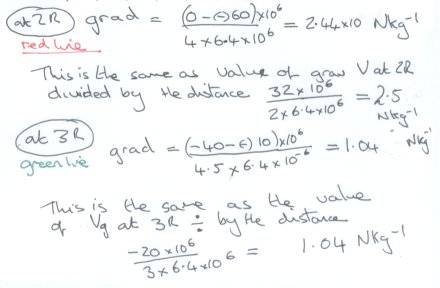 at 2R grad = (0-(-)60)×10⁶ / 4 × 6.4 × 10⁶ = 2.44×10 Nkg⁻¹
red line
This is the same as value of grav V at 2R
divided by the distance 32 × 10⁶ / 2 × 6.4 × 10⁶ = 2.5 Nkg⁻¹
at 3R grad = (-40-(-)10)×10⁶ / 4.5 × 6.4 × 10⁻⁶ = 1.04 Nkg⁻¹
green line
This is the same as the value
of Vg at 3R ÷ by the distance
-20 × 10⁶ / 3 × 6.4 × 10⁶ = 1.04 NKg⁻¹